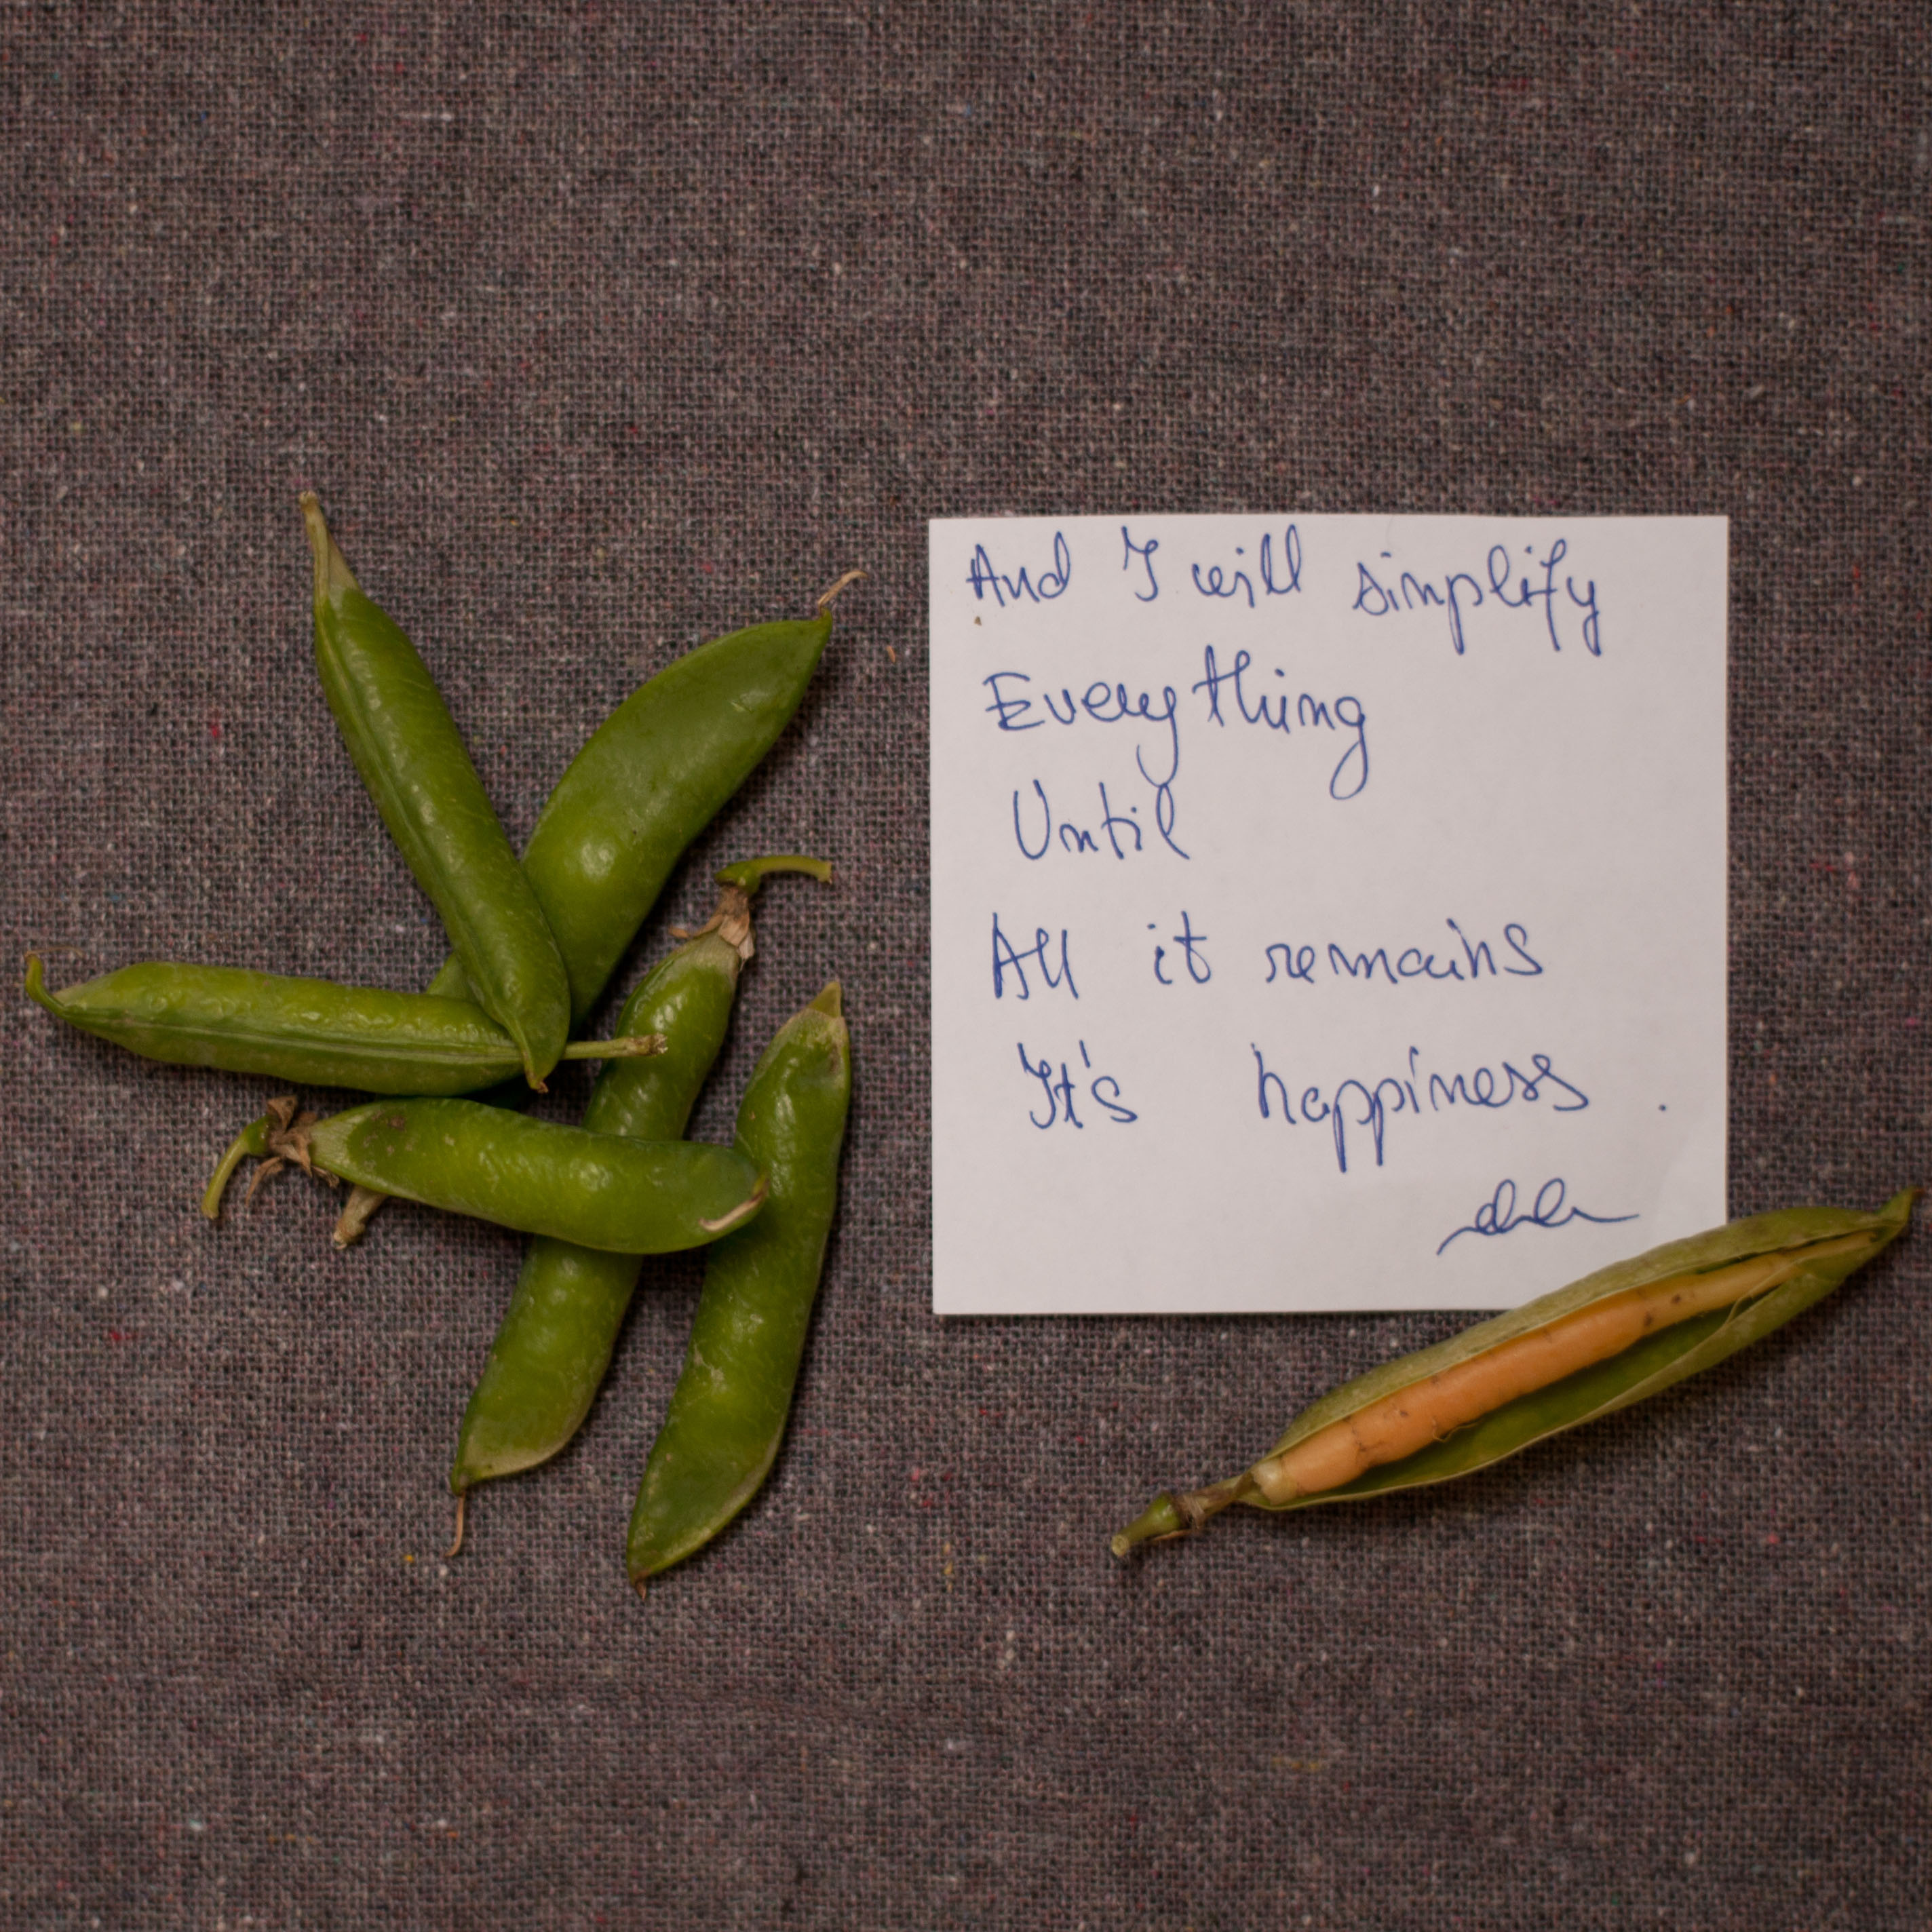 And I will simplify
Everything
Until
All it remains
It's happiness.